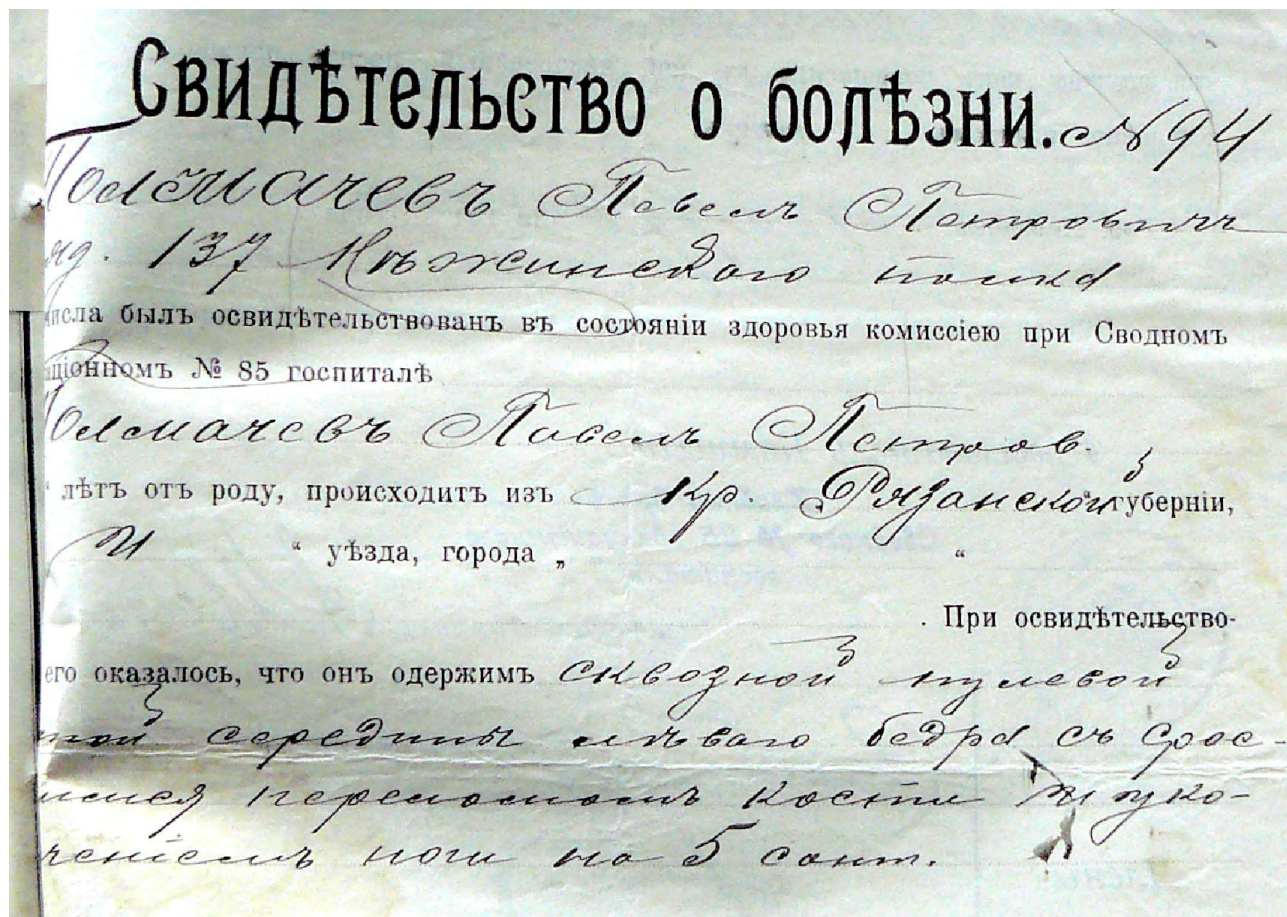 Свидѣтельство о болѣзни. № 94
Толмачевъ Павелъ Петровичъ
ряд. 137 Нѣжинскаго полка
числа былъ освидѣтельствованъ въ состояніи здоровья комиссіею при Сводномъ
аціонномъ № 85 госпиталѣ
Толмачевъ Павелъ Петров.
лѣтъ отъ роду, происходитъ изъ кр. Рязанской губерніи,
“ уѣзда, города „ “
. При освидѣтельство-
его оказалось, что онъ одержимъ сквозной пулевой
ной середины лѣваго бедра съ срос-
шимся переломомъ кости и уко-
ченіемъ ноги на 5 сант.